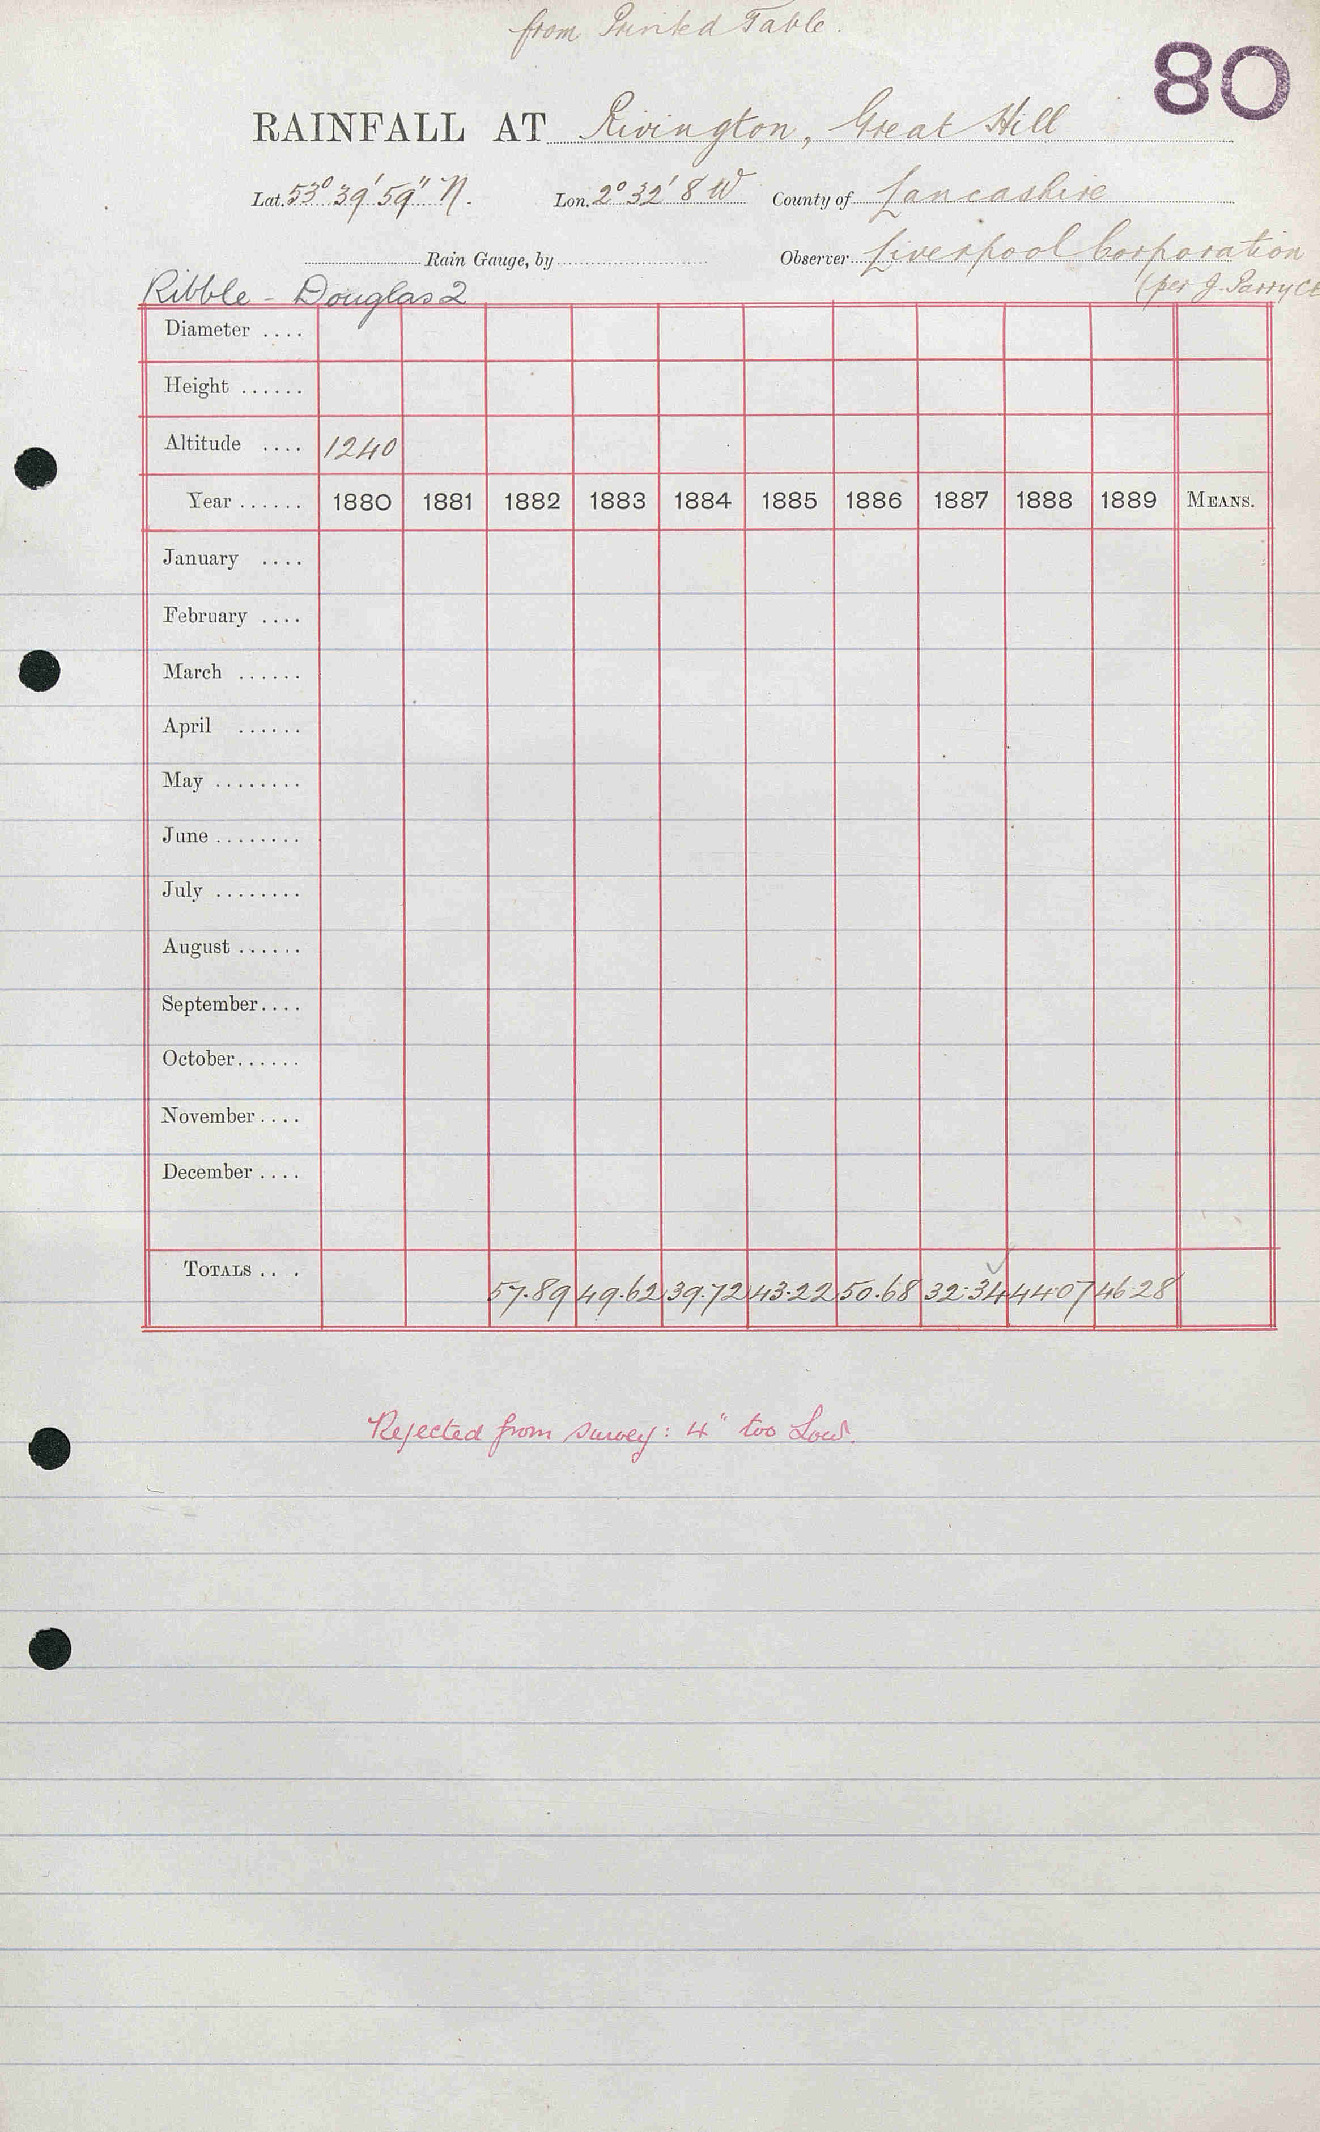 from Printed Table.
80
RAINFALL AT Rivington, Great Hill
Lat. 53° 39' 59" N. Lon. 2° 32' 8 W County of Lancashire
Rain Gauge, by Observer Liverpool Corporation
Ribble - Douglas 2 (per J. Parry CE
Diameter ....
Height ......
Altitude .... 1240
Year ...... 1880 1881 1882 1883 1884 1885 1886 1887 1888 1889 MEANS.
January ....
February ....
March ......
April ......
May ........
June ........
July ........
August ......
September ....
October ......
November ....
December ....
TOTALS .. . 57.89 49.62 39.72 43.22 50.68 32.34 44.07 46.28
Rejected from survey: 4" too Low.